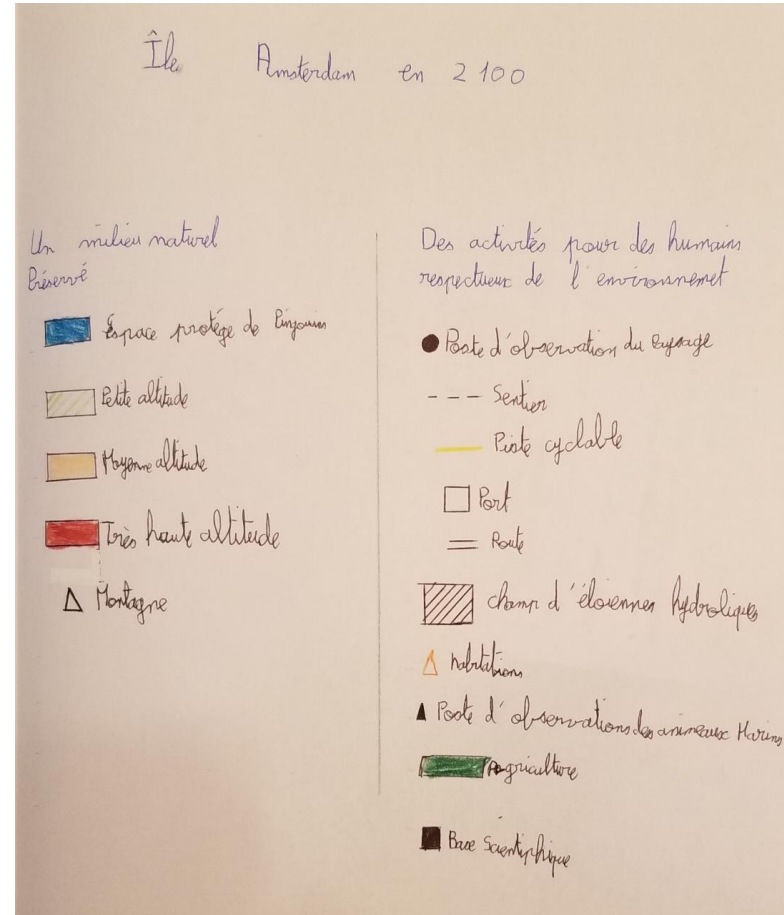 Île Amsterdam en 2100
Un milieu naturel
Préservé
Espace protége de Pingouins
Petite altitude
Moyenne altitude
Très haute altitude
Montagne
Des activités pour des humains
respectueux de l'environnemet
Poste d'observation du Paysage
Sentier
Piste cyclable
Port
Route
champ d'éoiennes hydroliques
habitations
Poste d'observations des animeaux Marins
Agriculture
Base Scientiphique